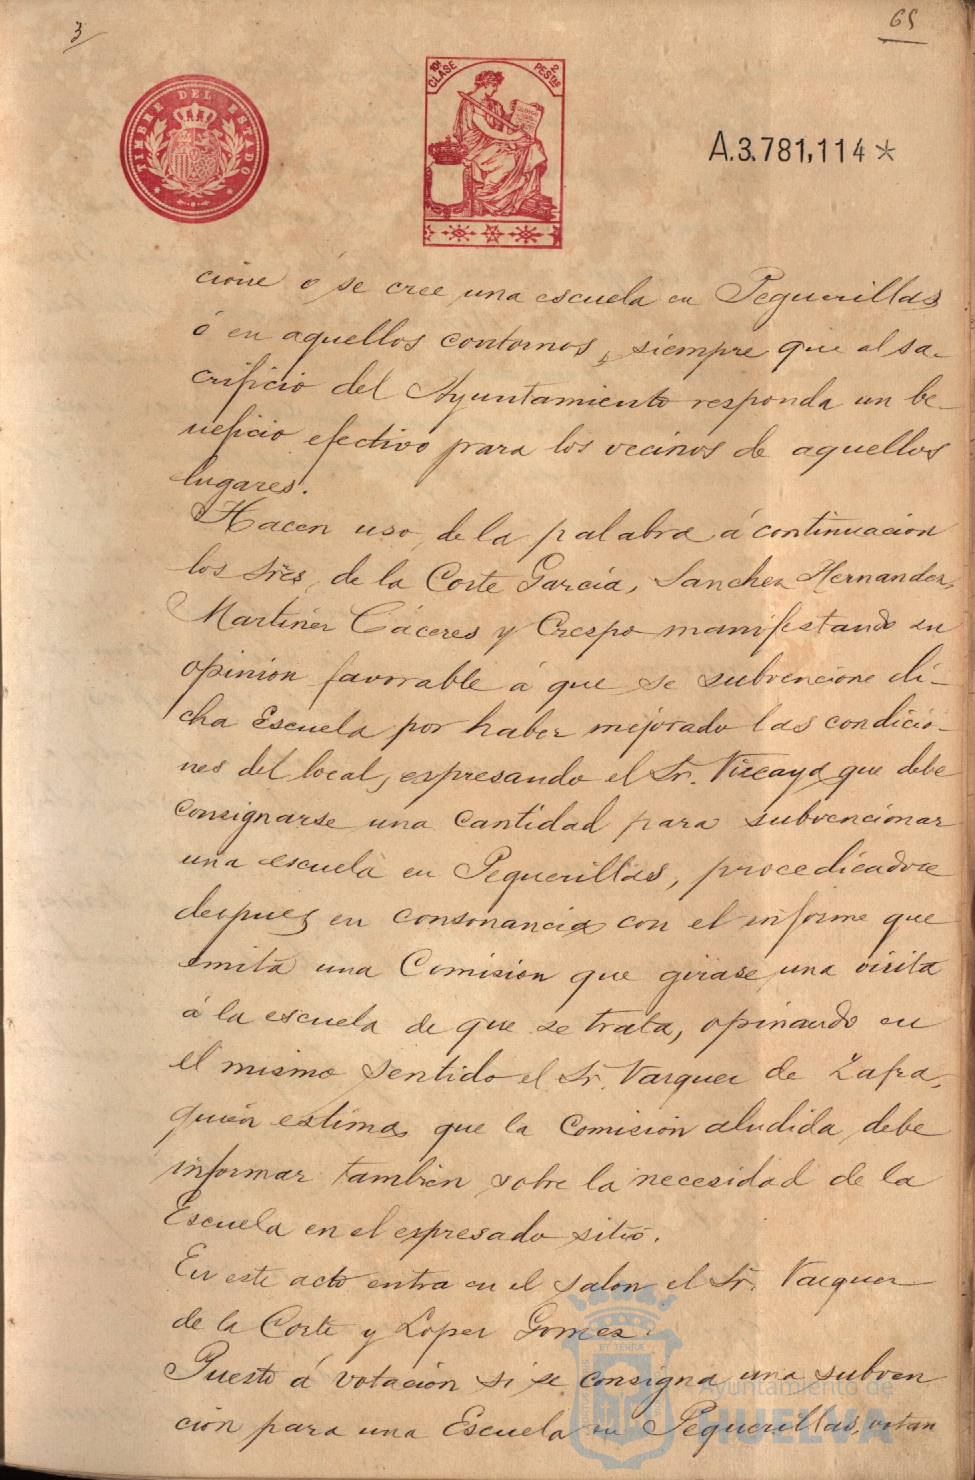 3
65
TIMBRE DEL ESTADO
10ª CLASE 2 PESTAS
A.3.781,114*
cione ó se cree una escuela en Peguerillas
ó en aquellos contornos, siempre que al sa-
crificio del Ayuntamiento responda un be-
neficio efectivo para los vecinos de aquellos
lugares.
Hacen uso de la palabra á continuacion
los Sres. de la Corte García, Sanchez Hernandez,
Martinez Cáceres y Crespo manifestando su
opinion favorable á que se subvencione di-
cha Escuela por haber mejorado las condicio-
nes del local, espresando el Sr. Vizcaya que debe
consignarse una cantidad para subvencionar
una escuela en Peguerillas, procediendose
despues en consonancia con el informe que
emita una Comision que girase una visita
á la escuela de que se trata, opinando en
el mismo sentido el Sr. Vazquez de Zafra,
quien estima que la Comision aludida debe
informar tambien sobre la necesidad de la
Escuela en el espresado sitio.
En este acto entra en el salon el Sr. Vazquez
de la Corte y Lopez Gomez.
Puesto á votacion si se consigna una subven
cion para una Escuela en Peguerillas, votan
Ayuntamiento de
HUELVA